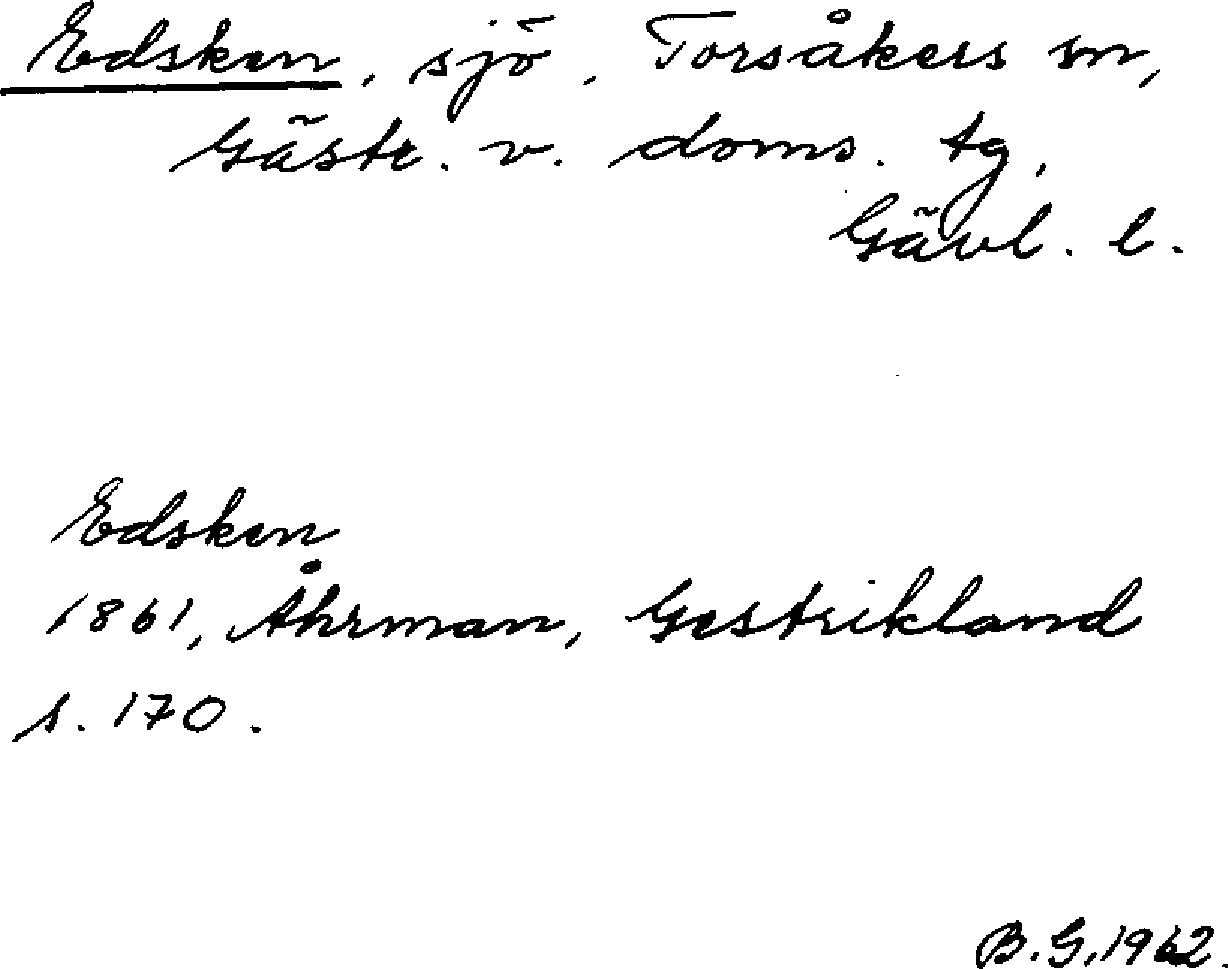 Edsken, sjö, Torsåkers sn,
Gästr. v. doms. tg,
Gävl. l.
Edsken
1861, Åhrman, Gestrikland
s. 170.
B.G. 1962.